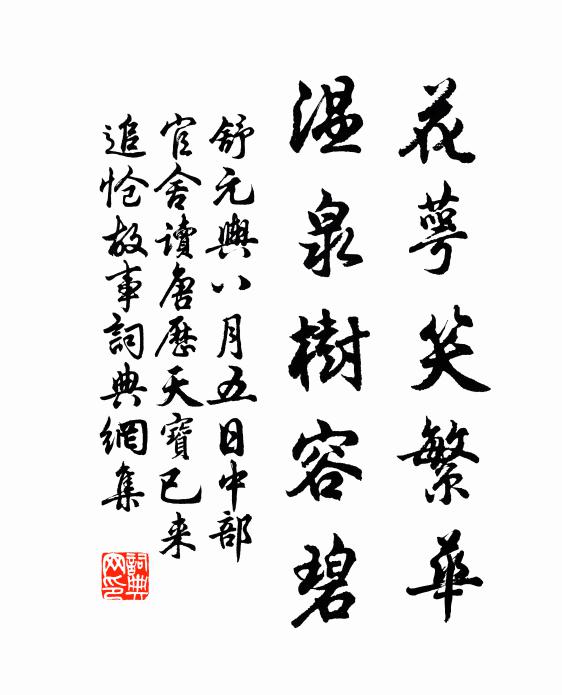 花萼笑繁華
温泉樹容碧
舒元輿八月五日中部
官舍讀唐歷天寶已来
追愴故事詞典網集
詞典
网印